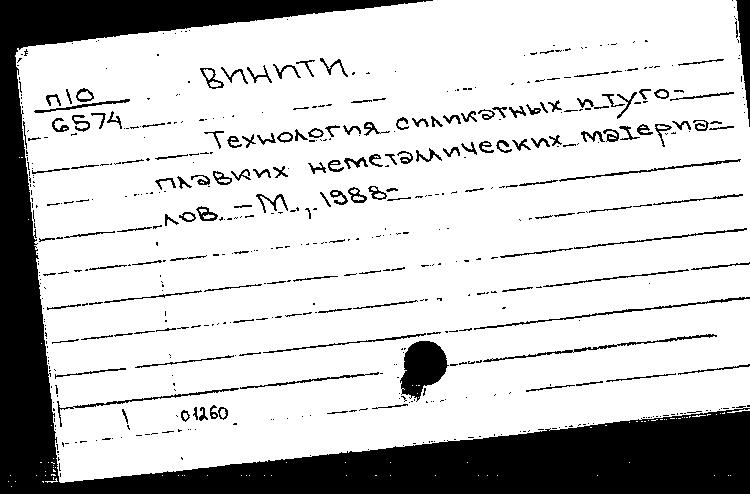 П10
6574
ВИНИТИ.
Технология силикатных и туго-
плавких неметаллических материа-
лов. – М., 1988-
01260